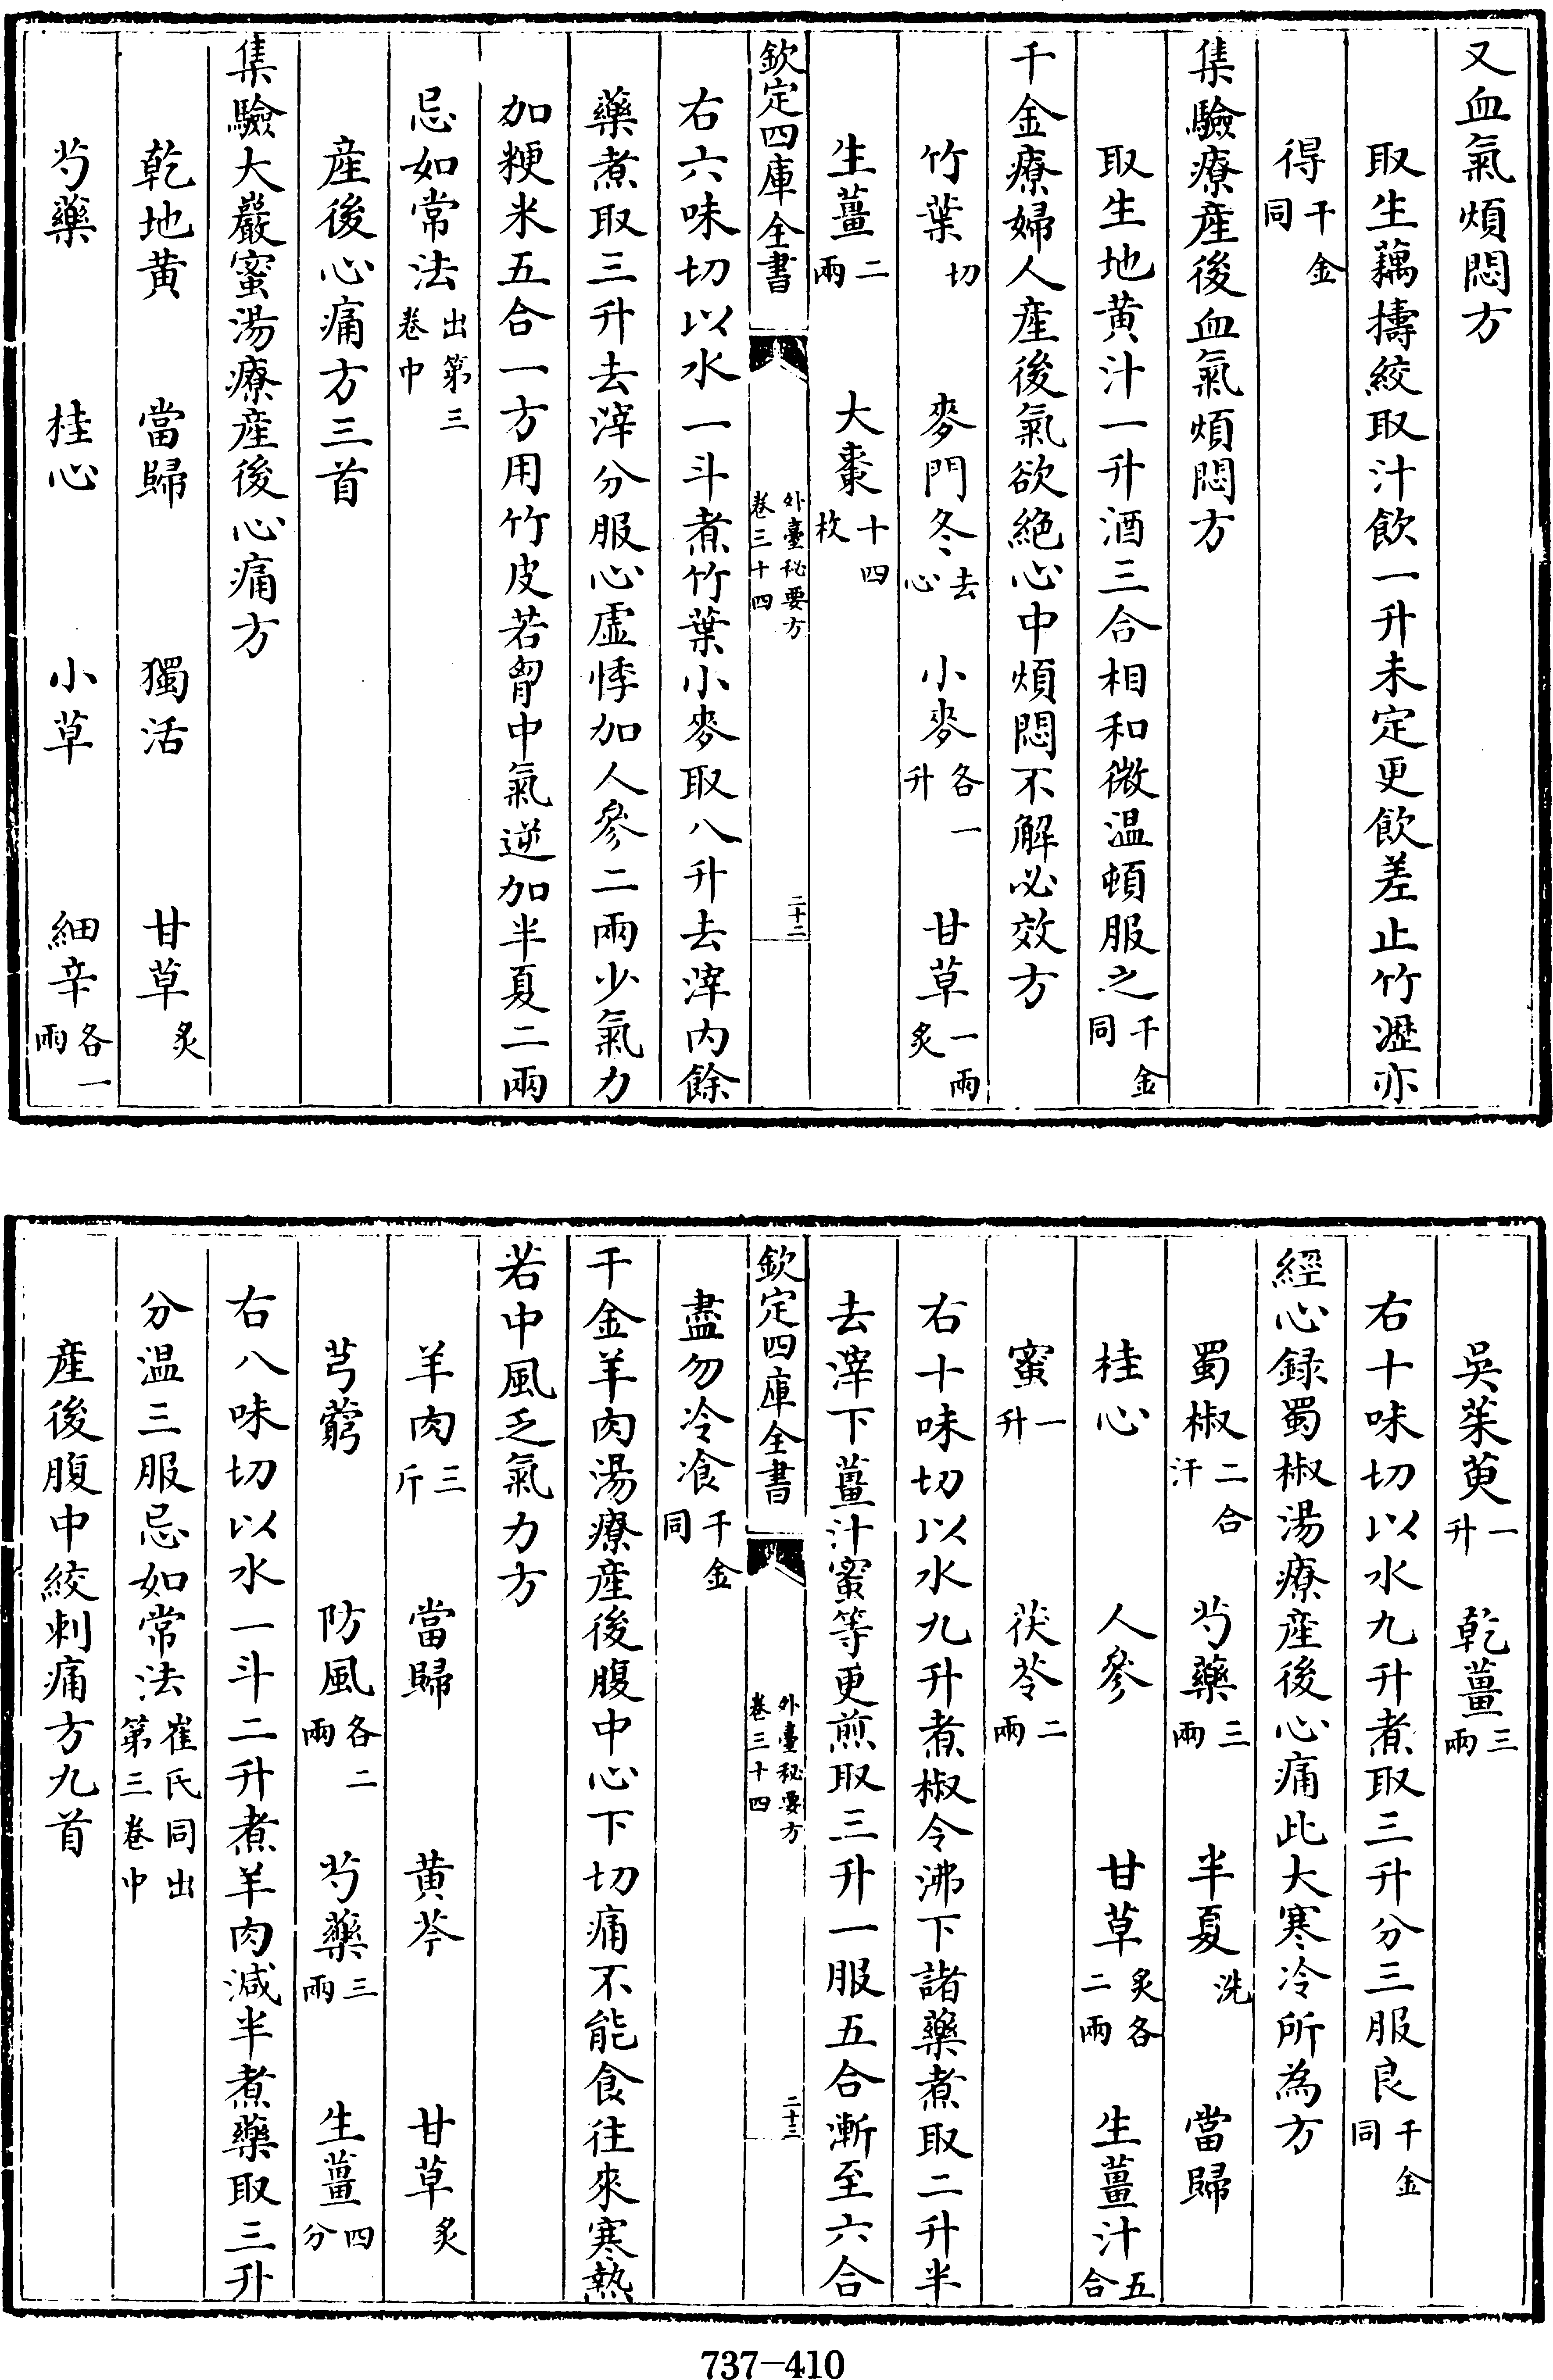 又血氣煩悶方
取生藕擣絞取汁飲一升未定更飲差止竹瀝亦
得千金同
集驗療産後血氣煩悶方
取生地黄汁一升酒三合相和微温頓服之千金同
千金療婦人産後氣欲絶心中煩悶不解必效方
竹葉切 麥門冬去心 小麥各一升 甘草一兩炙
生薑二兩 大棗十四枚
欽定四庫全書 外臺秘要方卷三十四 二十二
右六味切以水一斗煮竹葉小麥取八升去滓内餘
藥煮取三升去滓分服心虚悸加人參二兩少氣力
加粳米五合一方用竹皮若胷中氣逆加半夏二兩
忌如常法出第三卷中
産後心痛方三首
集驗大巖蜜湯療産後心痛方
乾地黄 當歸 獨活 甘草炙
芍藥 桂心 小草 細辛各一兩
吳茱萸一升 乾薑三兩
右十味切以水九升煮取三升分三服良千金同
經心録蜀椒湯療産後心痛此大寒冷所為方
蜀椒二合汗 芍藥三兩 半夏洗 當歸
桂心 人參 甘草炙各二兩 生薑汁五合
蜜一升 茯苓二兩
右十味切以水九升煮椒令沸下諸藥煮取二升半
去滓下薑汁蜜等更煎取三升一服五合漸至六合
欽定四庫全書 外臺秘要方卷三十四 二十三
盡勿冷飡千金同
千金羊肉湯療産後腹中心下切痛不能食往來寒熱
若中風乏氣力方
羊肉三斤 當歸 黄芩 甘草炙
芎藭 防風各二兩 芍藥三兩 生薑四分
右八味切以水一斗二升煮羊肉減半煮藥取三升
分温三服忌如常法崔氏同出第三卷中
産後腹中絞刺痛方九首
737-410